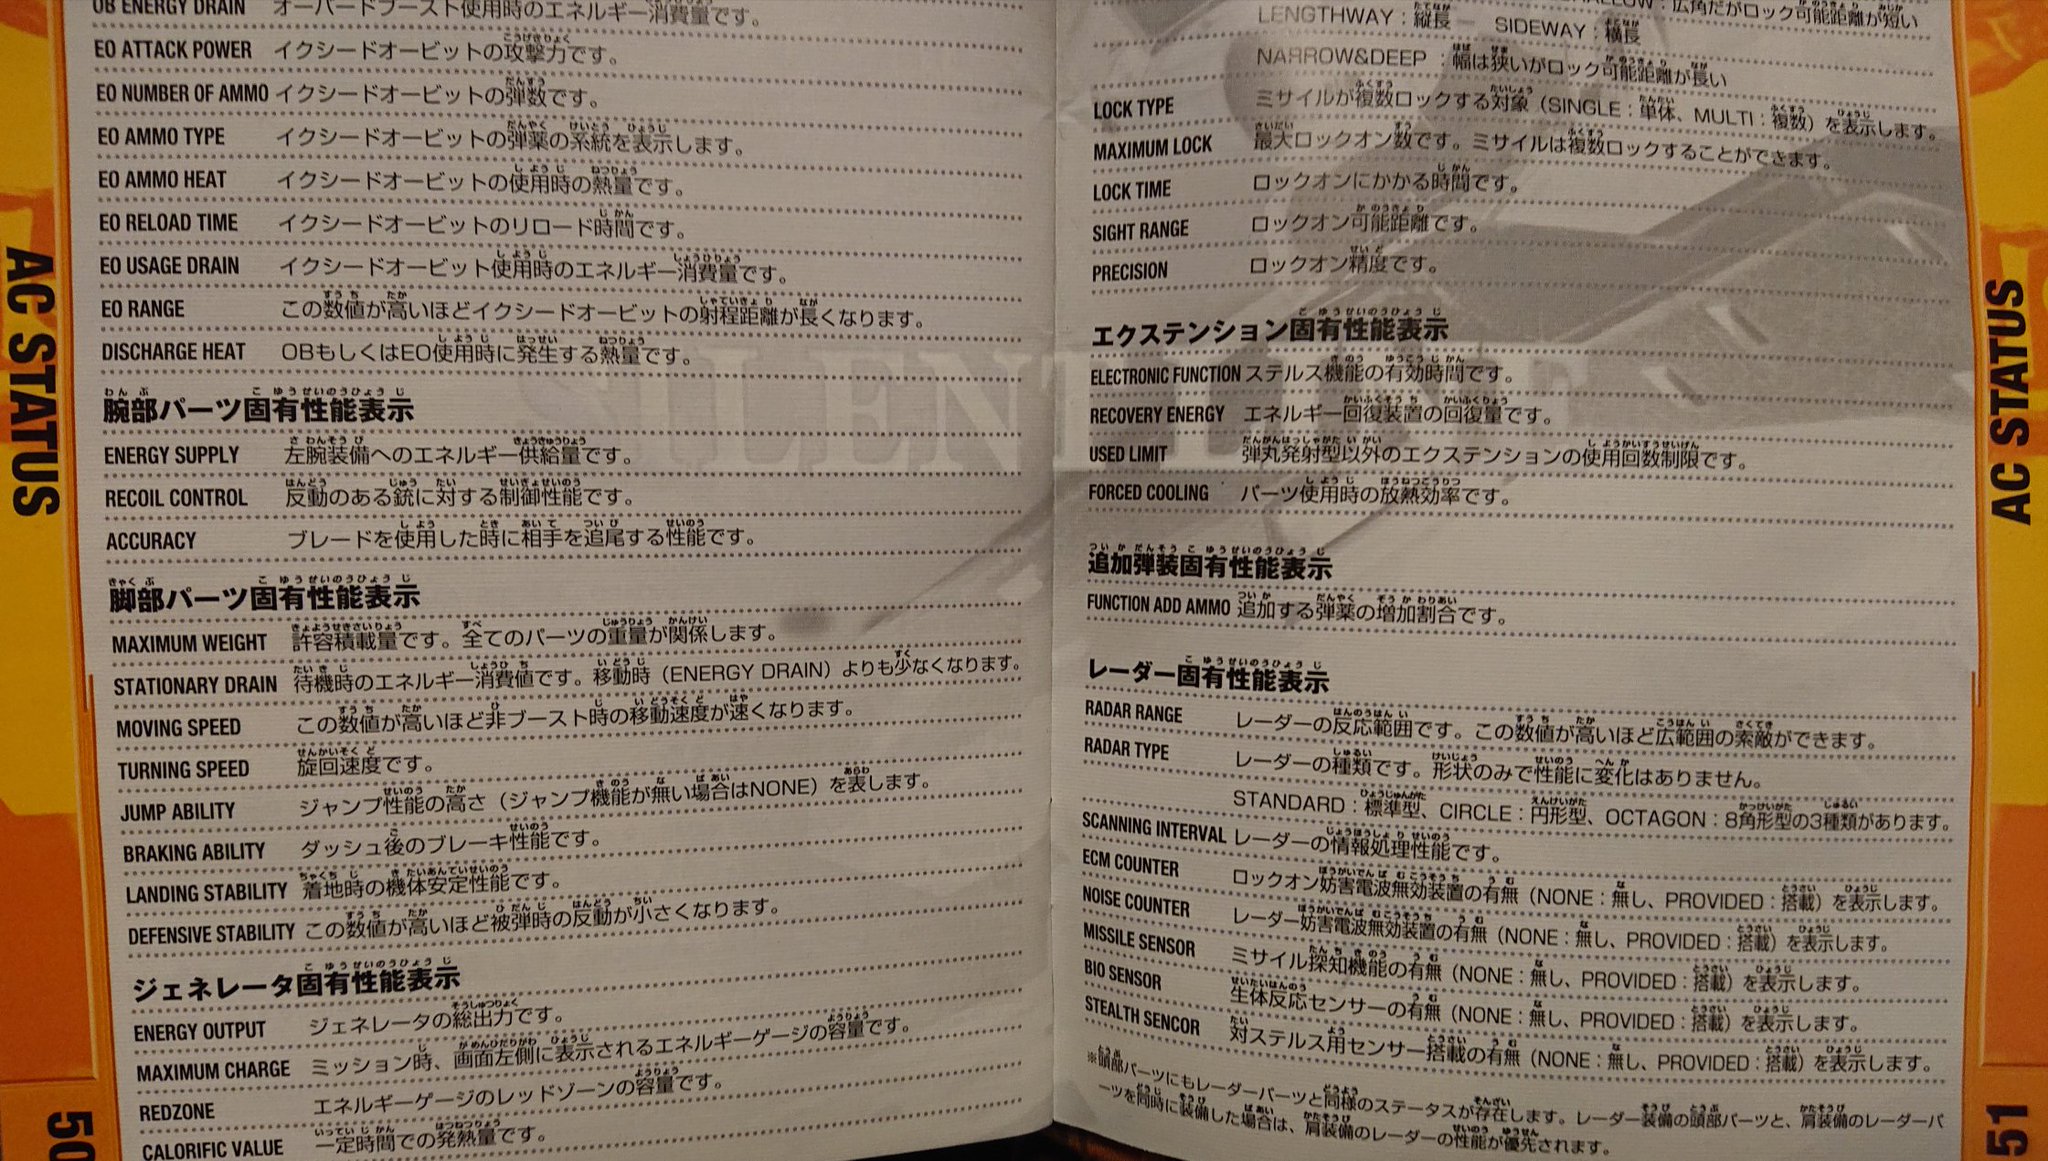 AC STATUS
50
OB ENERGY DRAIN オーバードブースト使用時のエネルギー消費量です。
EO ATTACK POWER イクシードオービットの攻撃力です。
EO NUMBER OF AMMO イクシードオービットの弾数です。
EO AMMO TYPE イクシードオービットの弾薬の系統を表示します。
EO AMMO HEAT イクシードオービットの使用時の熱量です。
EO RELOAD TIME イクシードオービットのリロード時間です。
EO USAGE DRAIN イクシードオービット使用時のエネルギー消費量です。
EO RANGE この数値が高いほどイクシードオービットの射程距離が長くなります。
DISCHARGE HEAT OBもしくはEO使用時に発生する熱量です。
腕部パーツ固有性能表示
ENERGY SUPPLY 左腕装備へのエネルギー供給量です。
RECOIL CONTROL 反動のある銃に対する制御性能です。
ACCURACY ブレードを使用した時に相手を追尾する性能です。
脚部パーツ固有性能表示
MAXIMUM WEIGHT 許容積載量です。全てのパーツの重量が関係します。
STATIONARY DRAIN 待機時のエネルギー消費値です。移動時（ENERGY DRAIN）よりも少なくなります。
MOVING SPEED この数値が高いほど非ブースト時の移動速度が速くなります。
TURNING SPEED 旋回速度です。
JUMP ABILITY ジャンプ性能の高さ（ジャンプ機能が無い場合はNONE）を表します。
BRAKING ABILITY ダッシュ後のブレーキ性能です。
LANDING STABILITY 着地時の機体安定性能です。
DEFENSIVE STABILITY この数値が高いほど被弾時の反動が小さくなります。
ジェネレータ固有性能表示
ENERGY OUTPUT ジェネレータの総出力です。
MAXIMUM CHARGE ミッション時、画面左側に表示されるエネルギーゲージの容量です。
REDZONE エネルギーゲージのレッドゾーンの容量です。
CALORIFIC VALUE 一定時間での発熱量です。
：広角だがロック可能距離が短い
LENGTHWAY：縦長 SIDEWAY：横長
NARROW&DEEP：幅は狭いがロック可能距離が長い
LOCK TYPE ミサイルが複数ロックする対象（SINGLE：単体、MULTI：複数）を表示します。
MAXIMUM LOCK 最大ロックオン数です。ミサイルは複数ロックすることができます。
LOCK TIME ロックオンにかかる時間です。
SIGHT RANGE ロックオン可能距離です。
PRECISION ロックオン精度です。
エクステンション固有性能表示
ELECTRONIC FUNCTION ステルス機能の有効時間です。
RECOVERY ENERGY エネルギー回復装置の回復量です。
USED LIMIT 弾丸発射型以外のエクステンションの使用回数制限です。
FORCED COOLING パーツ使用時の放熱効率です。
追加弾装固有性能表示
FUNCTION ADD AMMO 追加する弾薬の増加割合です。
レーダー固有性能表示
RADAR RANGE レーダーの反応範囲です。この数値が高いほど広範囲の索敵ができます。
RADAR TYPE レーダーの種類です。形状のみで性能に変化はありません。
STANDARD：標準型、CIRCLE：円形型、OCTAGON：8角形型の3種類があります。
SCANNING INTERVAL レーダーの情報処理性能です。
ECM COUNTER ロックオン妨害電波無効装置の有無（NONE：無し、PROVIDED：搭載）を表示します。
NOISE COUNTER レーダー妨害電波無効装置の有無（NONE：無し、PROVIDED：搭載）を表示します。
MISSILE SENSOR ミサイル探知機能の有無（NONE：無し、PROVIDED：搭載）を表示します。
BIO SENSOR 生体反応センサーの有無（NONE：無し、PROVIDED：搭載）を表示します。
STEALTH SENCOR 対ステルス用センサー搭載の有無（NONE：無し、PROVIDED：搭載）を表示します。
※頭部パーツにもレーダーパーツと同様のステータスが存在します。レーダー装備の頭部パーツと、肩装備のレーダーパ
ーツを同時に装備した場合は、肩装備のレーダーの性能が優先されます。
AC STATUS
51